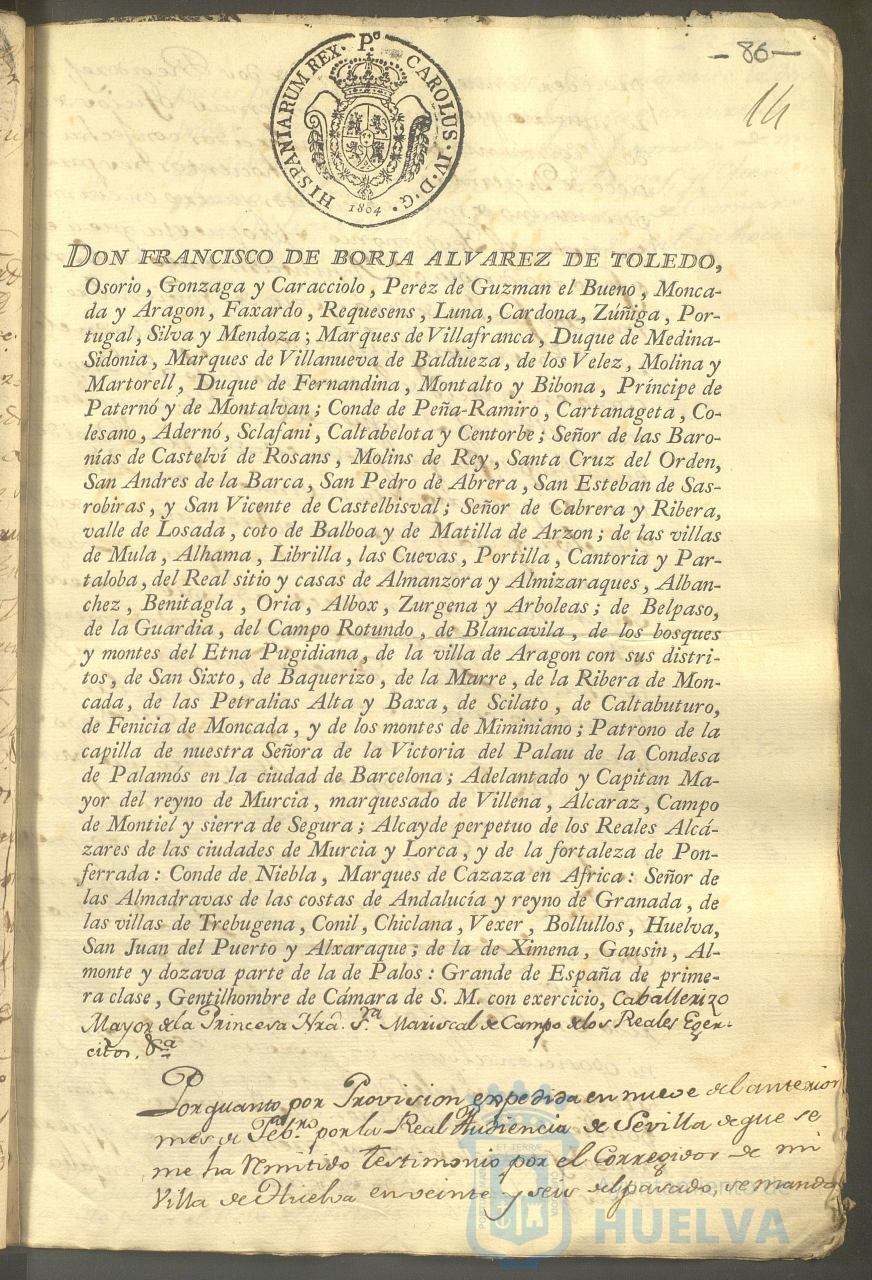 HISPANIARUM REX. P.º CAROLUS. IV. D. G.
1804
-86-
14
DON FRANCISCO DE BORJA ALVAREZ DE TOLEDO,
Osorio, Gonzaga y Caracciolo, Perez de Guzman el Bueno, Monca-
da y Aragon, Faxardo, Requesens, Luna, Cardona, Zúñiga, Por-
tugal, Silva y Mendoza; Marques de Villafranca, Duque de Medina-
Sidonia, Marques de Villanueva de Baldueza, de los Velez, Molina y
Martorell, Duque de Fernandina, Montalto y Bibona, Príncipe de
Paternó y de Montalvan; Conde de Peña-Ramiro, Cartanageta, Co-
lesano, Adernó, Sclafani, Caltabelota y Centorbe; Señor de las Baro-
nías de Castelví de Rosans, Molins de Rey, Santa Cruz del Orden,
San Andres de la Barca, San Pedro de Abrera, San Esteban de Sas-
robiras, y San Vicente de Castelbisval; Señor de Cabrera y Ribera,
valle de Losada, coto de Balboa y de Matilla de Arzon; de las villas
de Mula, Alhama, Librilla, las Cuevas, Portilla, Cantoria y Par-
taloba, del Real sitio y casas de Almanzora y Almizaraques, Alban-
chez, Benitagla, Oria, Albox, Zurgena y Arboleas; de Belpaso,
de la Guardia, del Campo Rotundo, de Blancavila, de los bosques
y montes del Etna Pugidiana, de la villa de Aragon con sus distri-
tos, de San Sixto, de Baquerizo, de la Marre, de la Ribera de Mon-
cada, de las Petralias Alta y Baxa, de Scilato, de Caltabuturo,
de Fenicia de Moncada, y de los montes de Miminiano; Patrono de la
capilla de nuestra Señora de la Victoria del Palau de la Condesa
de Palamós en la ciudad de Barcelona; Adelantado y Capitan Ma-
yor del reyno de Murcia, marquesado de Villena, Alcaraz, Campo
de Montiel y sierra de Segura; Alcayde perpetuo de los Reales Alcá-
zares de las ciudades de Murcia y Lorca, y de la fortaleza de Pon-
ferrada: Conde de Niebla, Marques de Cazaza en Africa: Señor de
las Almadravas de las costas de Andalucía y reyno de Granada, de
las villas de Trebugena, Conil, Chiclana, Vexer, Bollullos, Huelva,
San Juan del Puerto y Alxaraque; de la de Ximena, Gausin, Al-
monte y dozava parte de la de Palos: Grande de España de prime-
ra clase, Gentilhombre de Cámara de S. M. con exercicio, Caballerizo
Mayor de la Princesa Nrâ. S.ra Mariscal de Campo de los Reales Exer-
citos, &a
Por quanto por Provision expedida en nueve del anterior
mes de Feb.ro por la Real Audiencia de Sevilla de que se
me ha remitido testimonio por el Corregidor de mi
Villa de Huelva en veinte y seis del pasado, se manda
HUELVA